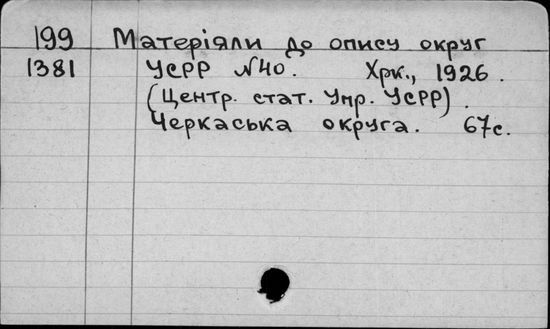 199 Матеріяли до опису округ
1381 УСРР №40. Хрк., 1926.
(Центр. стат. Упр. УСРР).
Черкаська округа. 67с.